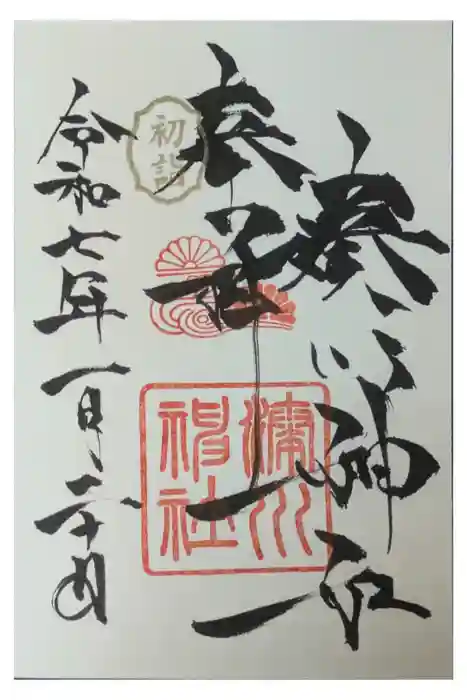 湊川神社
奉拝
初詣
湊川
神社
令和七年一月二十日